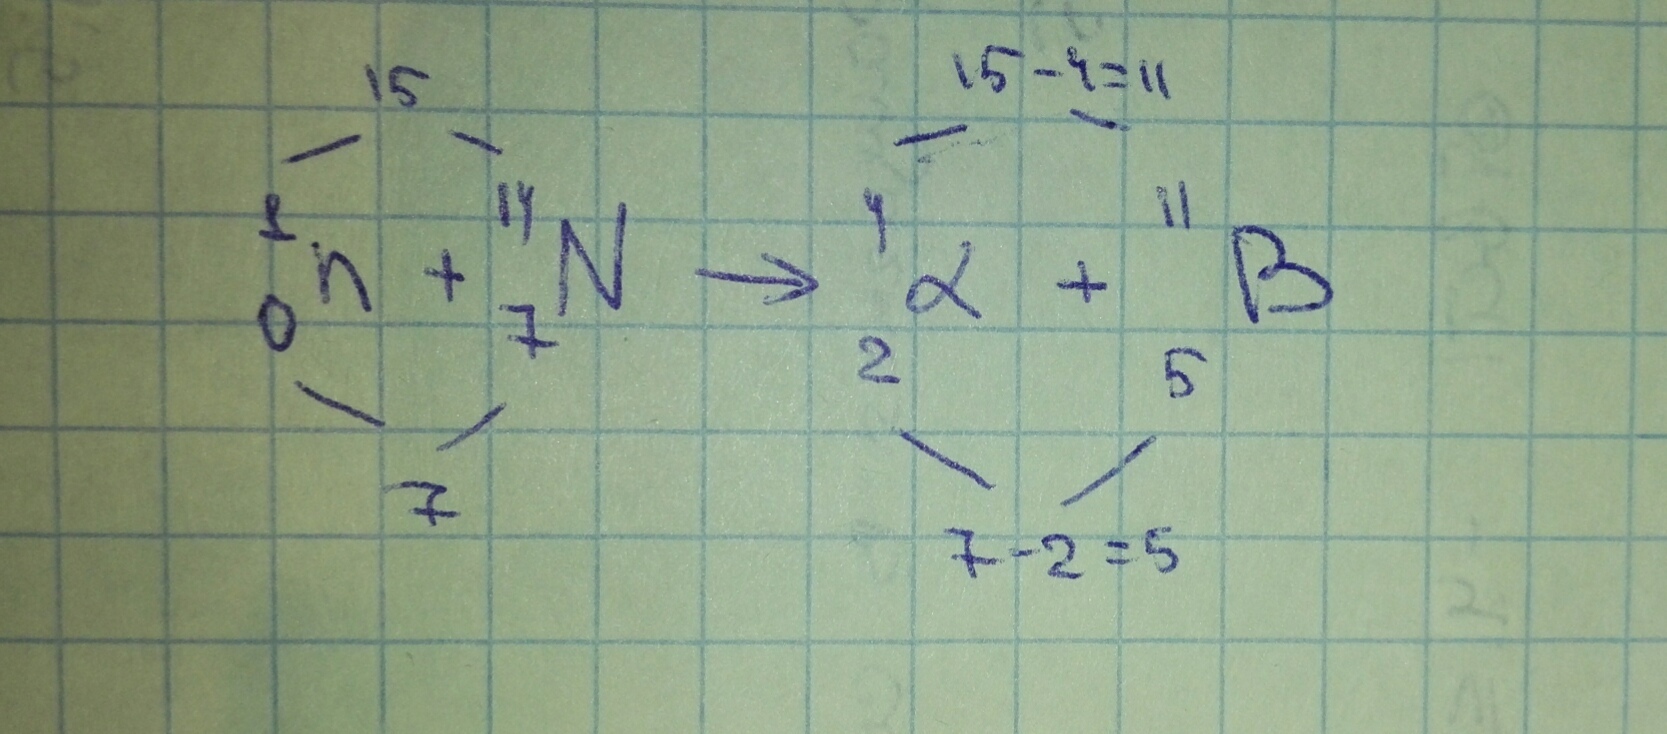 15 15-4=11
1 14 4 11
n + N → α + B
0 7 2 5
7 7-2=5